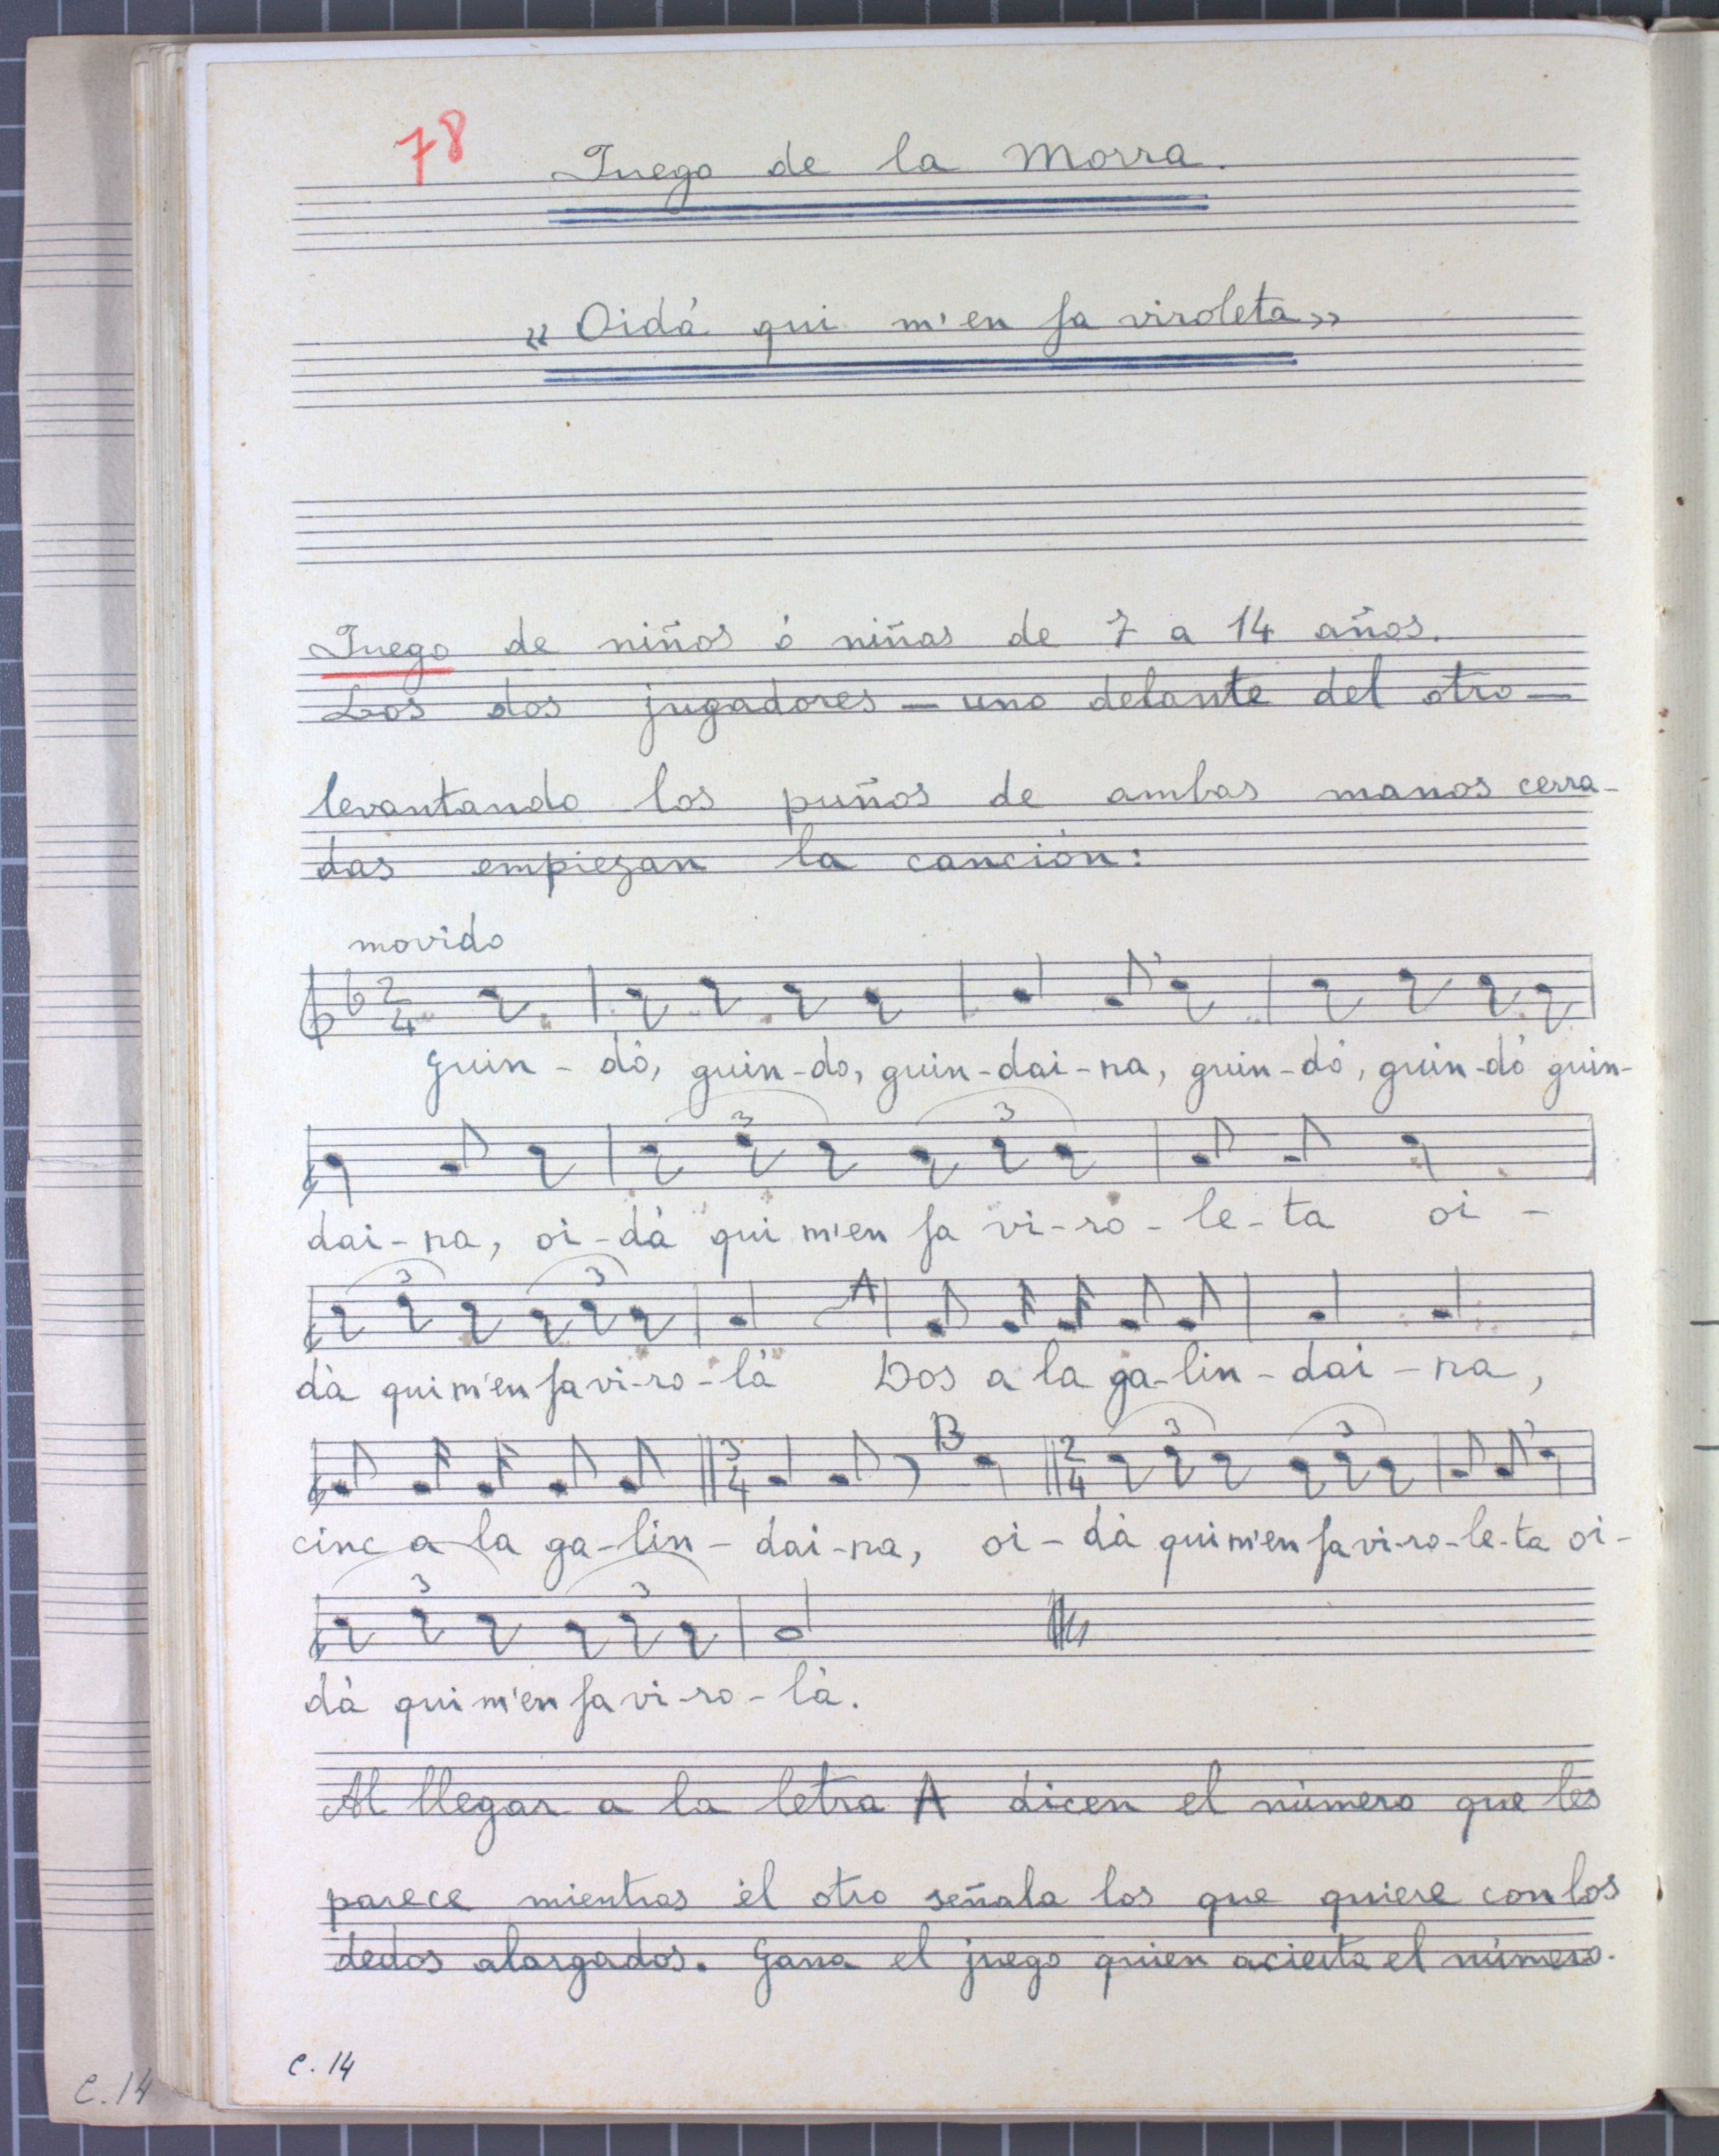 78
Juego de la Morra.
« Oidá qui m'en fa viroleta »
Juego de niños ó niñas de 7 a 14 años.
Los dos jugadores — uno delante del otro —
levantando los puños de ambas manos cerra-
das empiezan la canción:
movido
2
4
Guin - dó, guin - do, guin - dai - na, guin - dó, guin - dó guin-
3 3
dai - na, oi - dà qui m'en fa vi - ro - le - ta oi -
3 3 A
dà qui m'en fa vi - ro - là Dos a la ga - lin - dai - na,
3 4 B 2 4 3 3
cinc a la ga - lin - dai - na, oi - dà qui m'en fa vi - ro - le - ta oi -
3 3
dà qui m'en fa vi - ro - là.
Al llegar a la letra A dicen el número que les
parece mientras él otro señala los que quiere con los
dedos alargados. Gana el juego quien acierta el número.
C. 14
C. 14